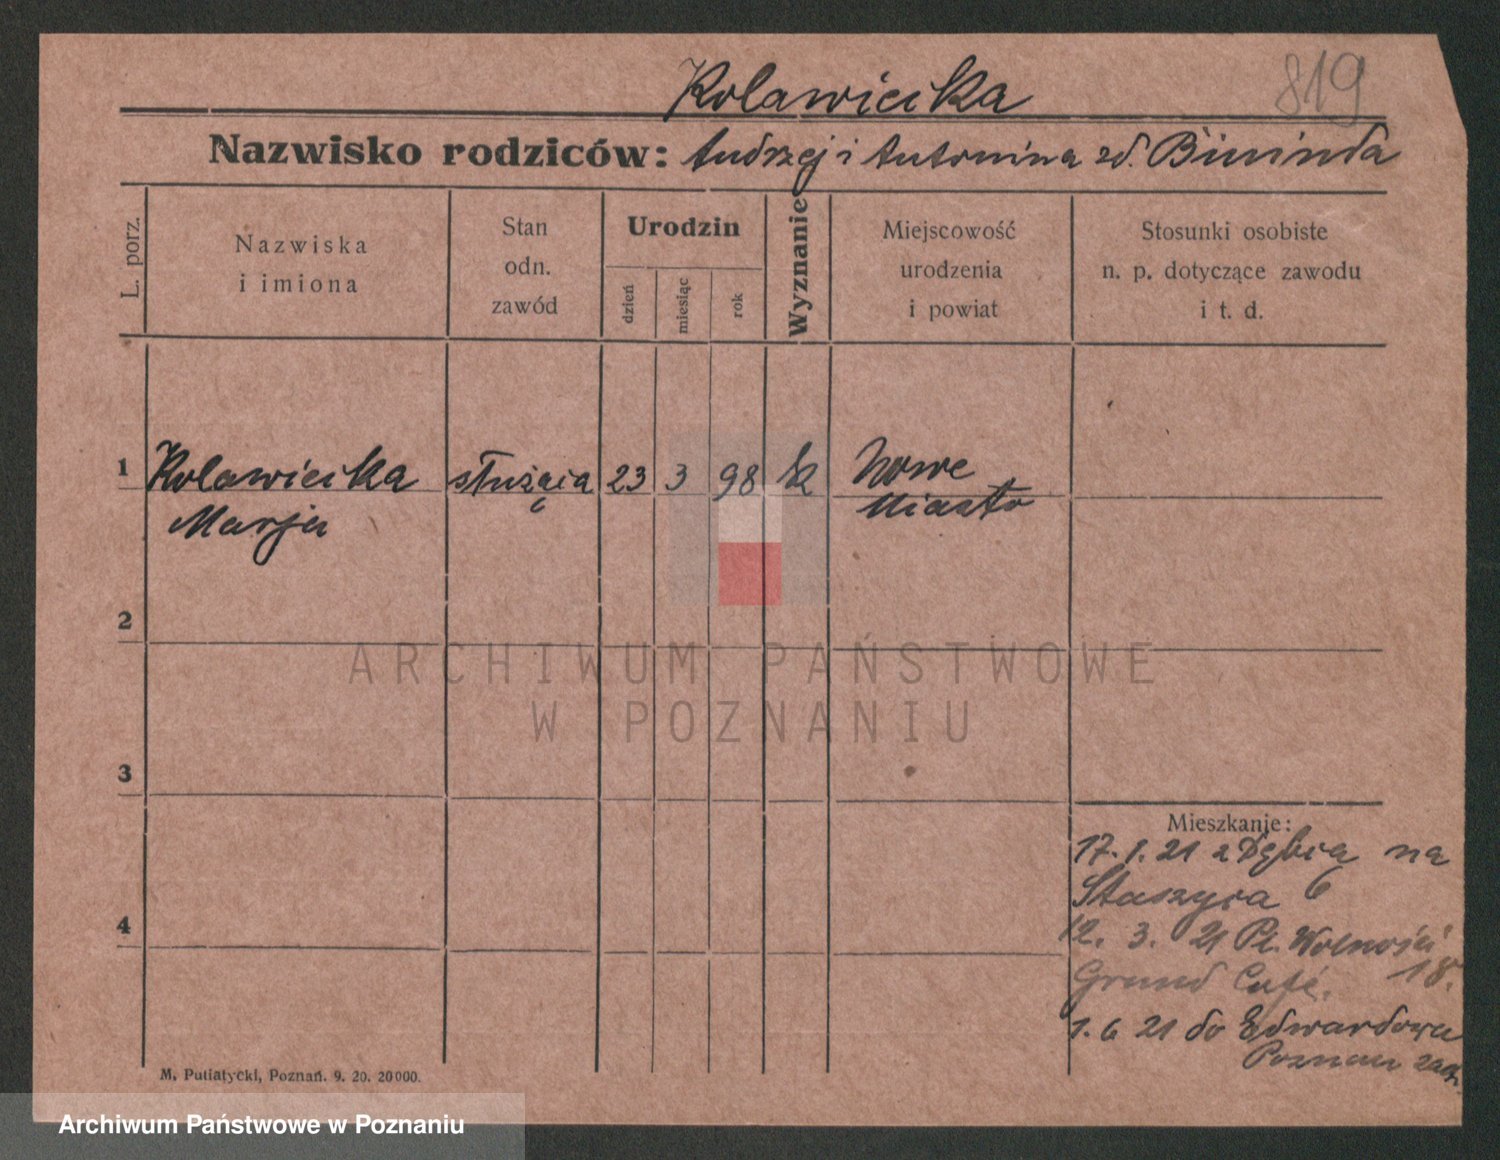 Kolawiecka
819
Nazwisko rodziców: Andrzej i Antonina zd. Bininda
L. porz.
Nazwiska
i imiona
Stan
odn.
zawód
Urodzin
dzień
miesiąc
rok
Wyznanie
Miejscowość
urodzenia
i powiat
Stosunki osobiste
n. p. dotyczące zawodu
i t. d.
1 Kolawiecka służąca 23 3 98 k Nowe
Marja Miasto
2
3
4
Mieszkanie:
17. 1. 21 z Dębią na
Staszyca 6
12. 3. 21 Pl. Wolności
Grand Café. 18.
1. 6 21 do Edwardowa
Poznań zach.
M. Putiatycki, Poznań. 9. 20. 20000.
ARCHIWUM PAŃSTWOWE
W POZNANIU
Archiwum Państwowe w Poznaniu